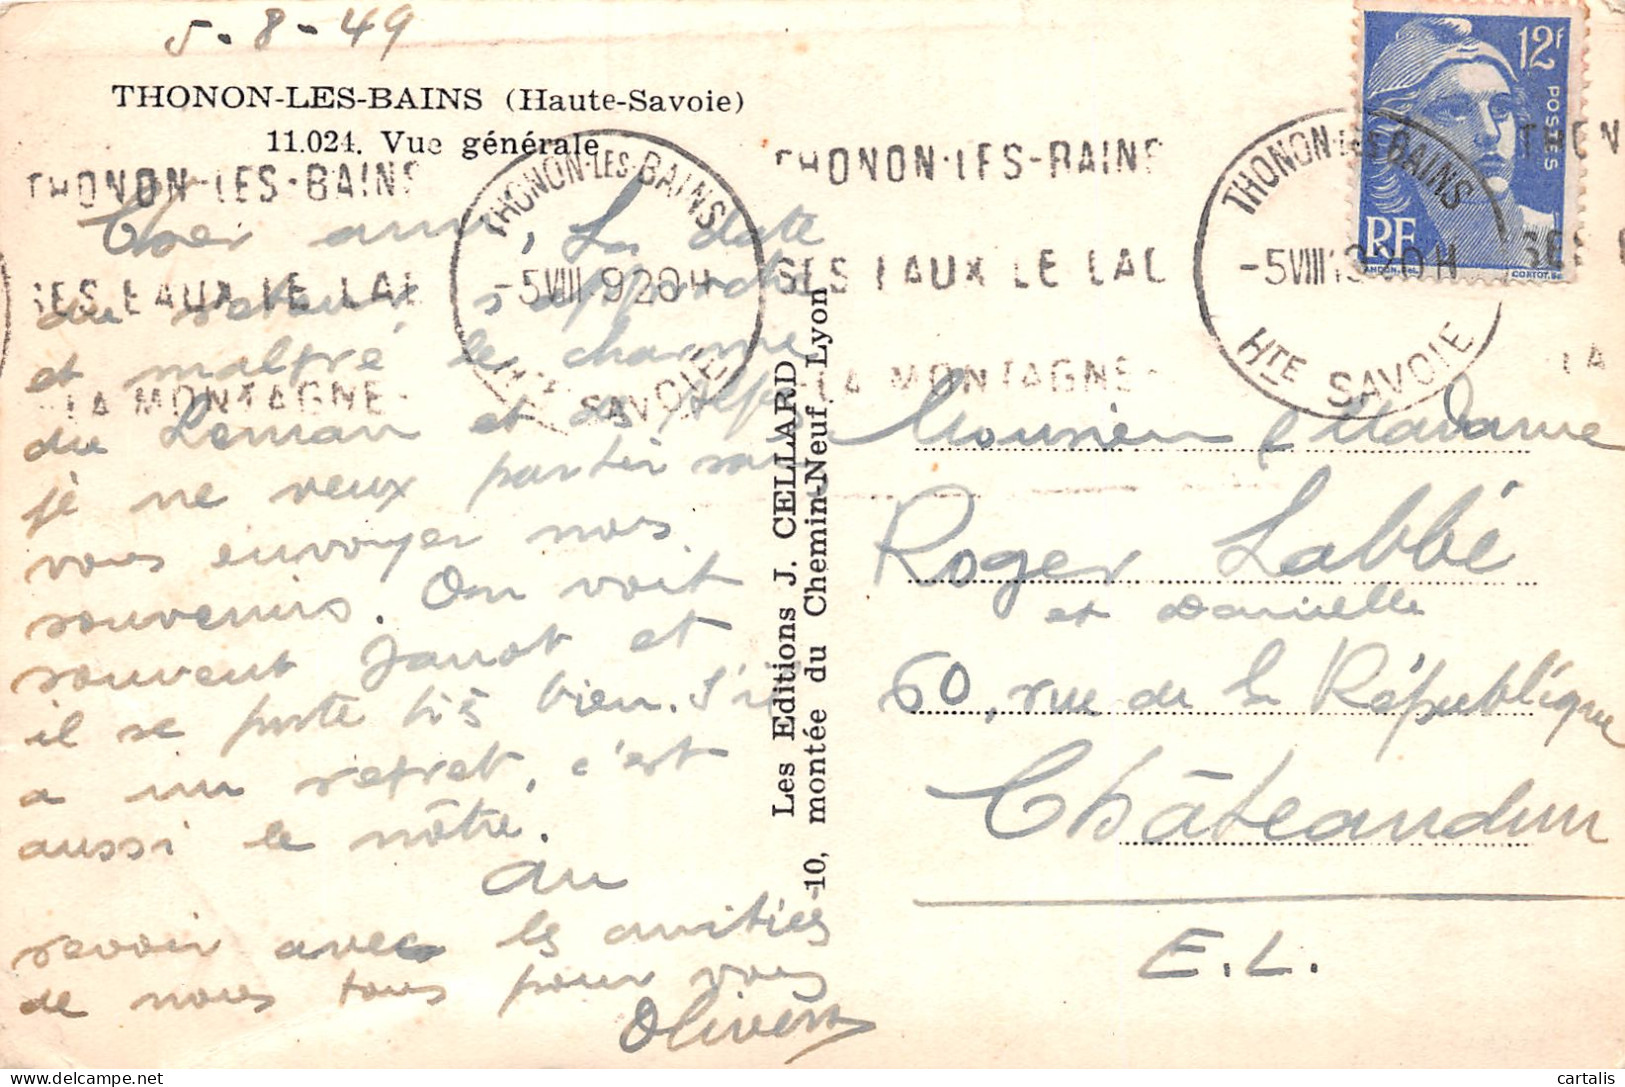 5-8-49
THONON-LES-BAINS (Haute-Savoie)
11.024. Vue générale
THONON·LES-BAINS
SES EAUX LE LAC
LA MONTAGNE
THONON-LES-BAINS
-5 VIII 9 20 H
HTE SAVOIE
THONON·LES-BAINS
SES EAUX LE LAC
LA MONTAGNE
THONON-LES-BAINS
-5 VIII 19 20 H
HTE SAVOIE
12F
POSTES
RF
GANDON. DEL.
CORTOT. SC.
THON
SES E
LA
Cher ami, La date
du retour s'approche
et malgré le charme
du Léman et des Alpes
je ne veux partir sans
vous envoyer nos
souvenirs. On voit
souvent Janot et
il se porte très bien. S'il
a un regret, c'est
aussi le nôtre.
Au
revoir avec les amitiés
de nous tous pour vous
Les Editions J. CELLARD
10, montée du Chemin-Neuf, Lyon
Monsieur & Madame
Roger Labbé
et Danielle
60, rue de la République
Châteaudun
E.L.
cartalis